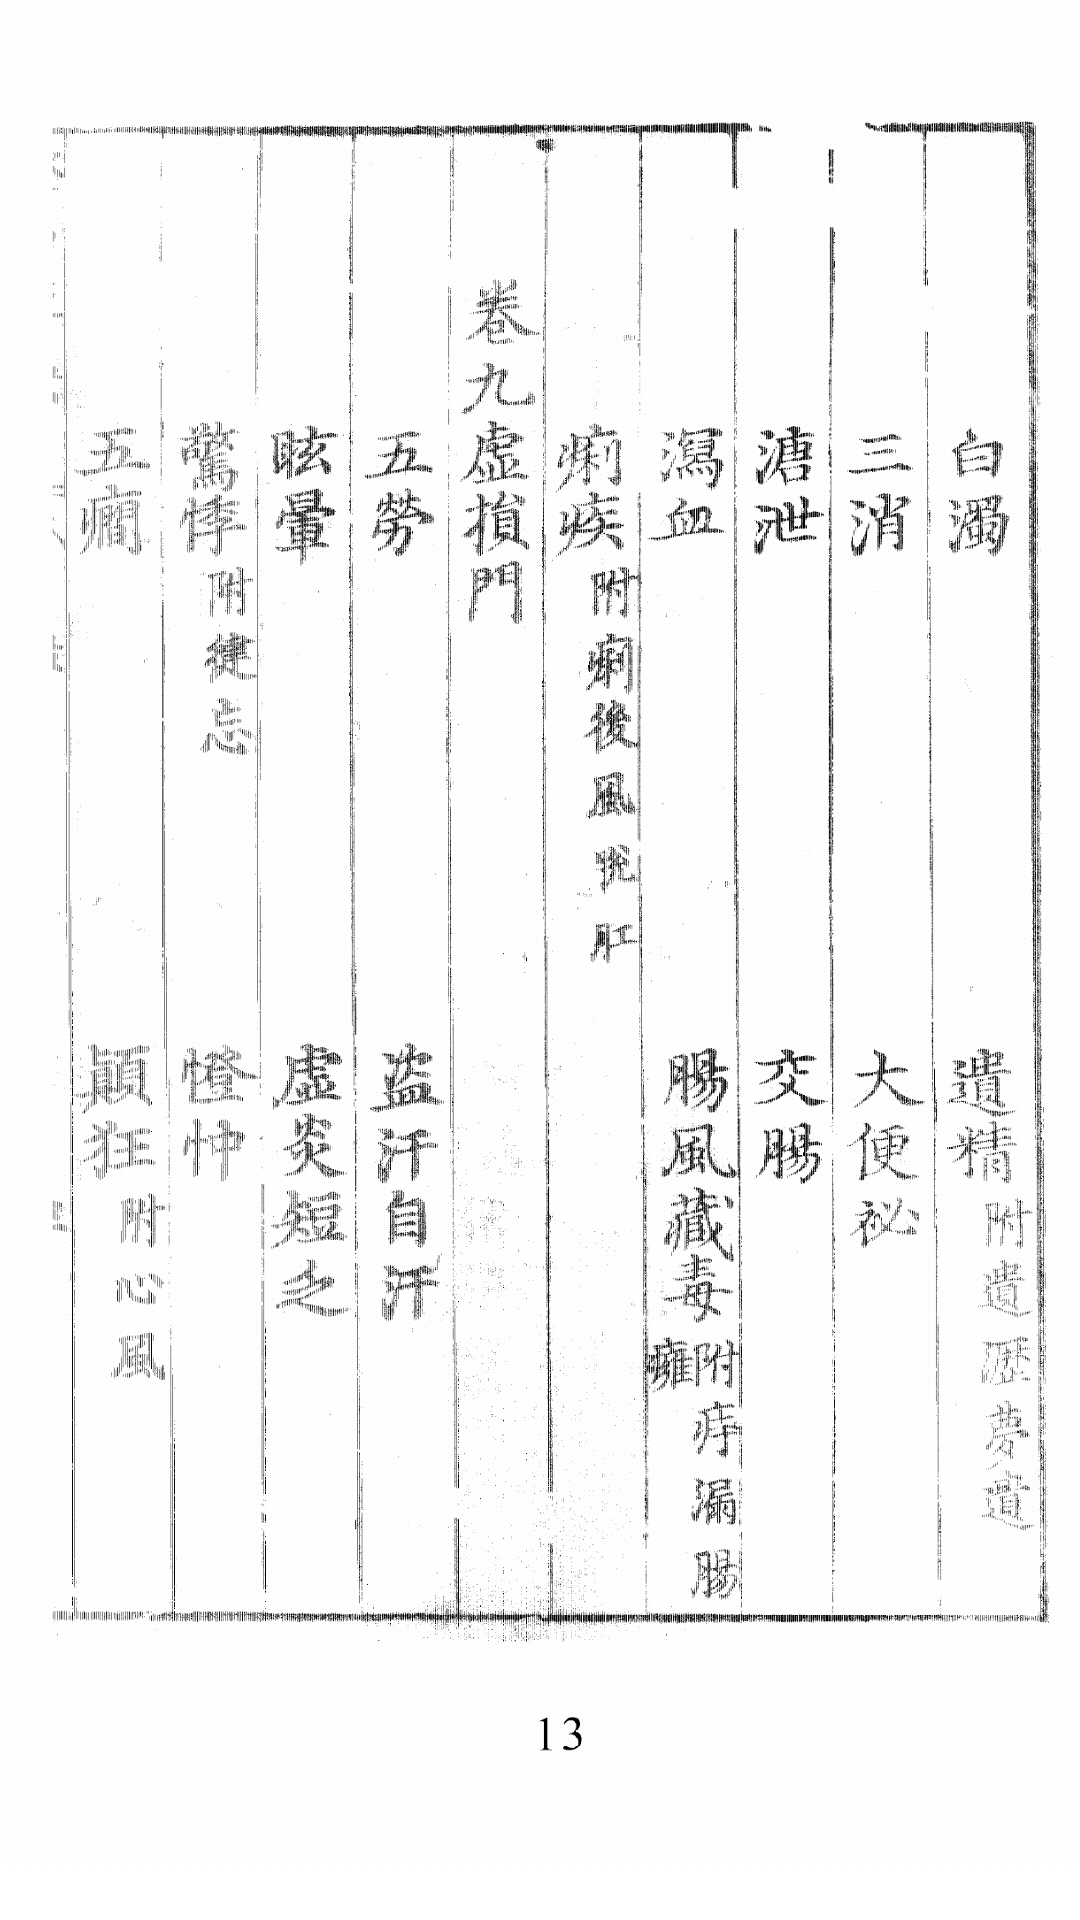 白濁　遺精附遺瀝夢遺
三消　大便祕
溏泄　交腸
瀉血　腸風藏毒附痔漏腸癰
痢疾附痢後風脫肛
卷九虛損門
五勞　盜汗自汗
眩暈　虛炎短乏
驚悸附健忘　怔忡
五癇　顛狂附心風
13